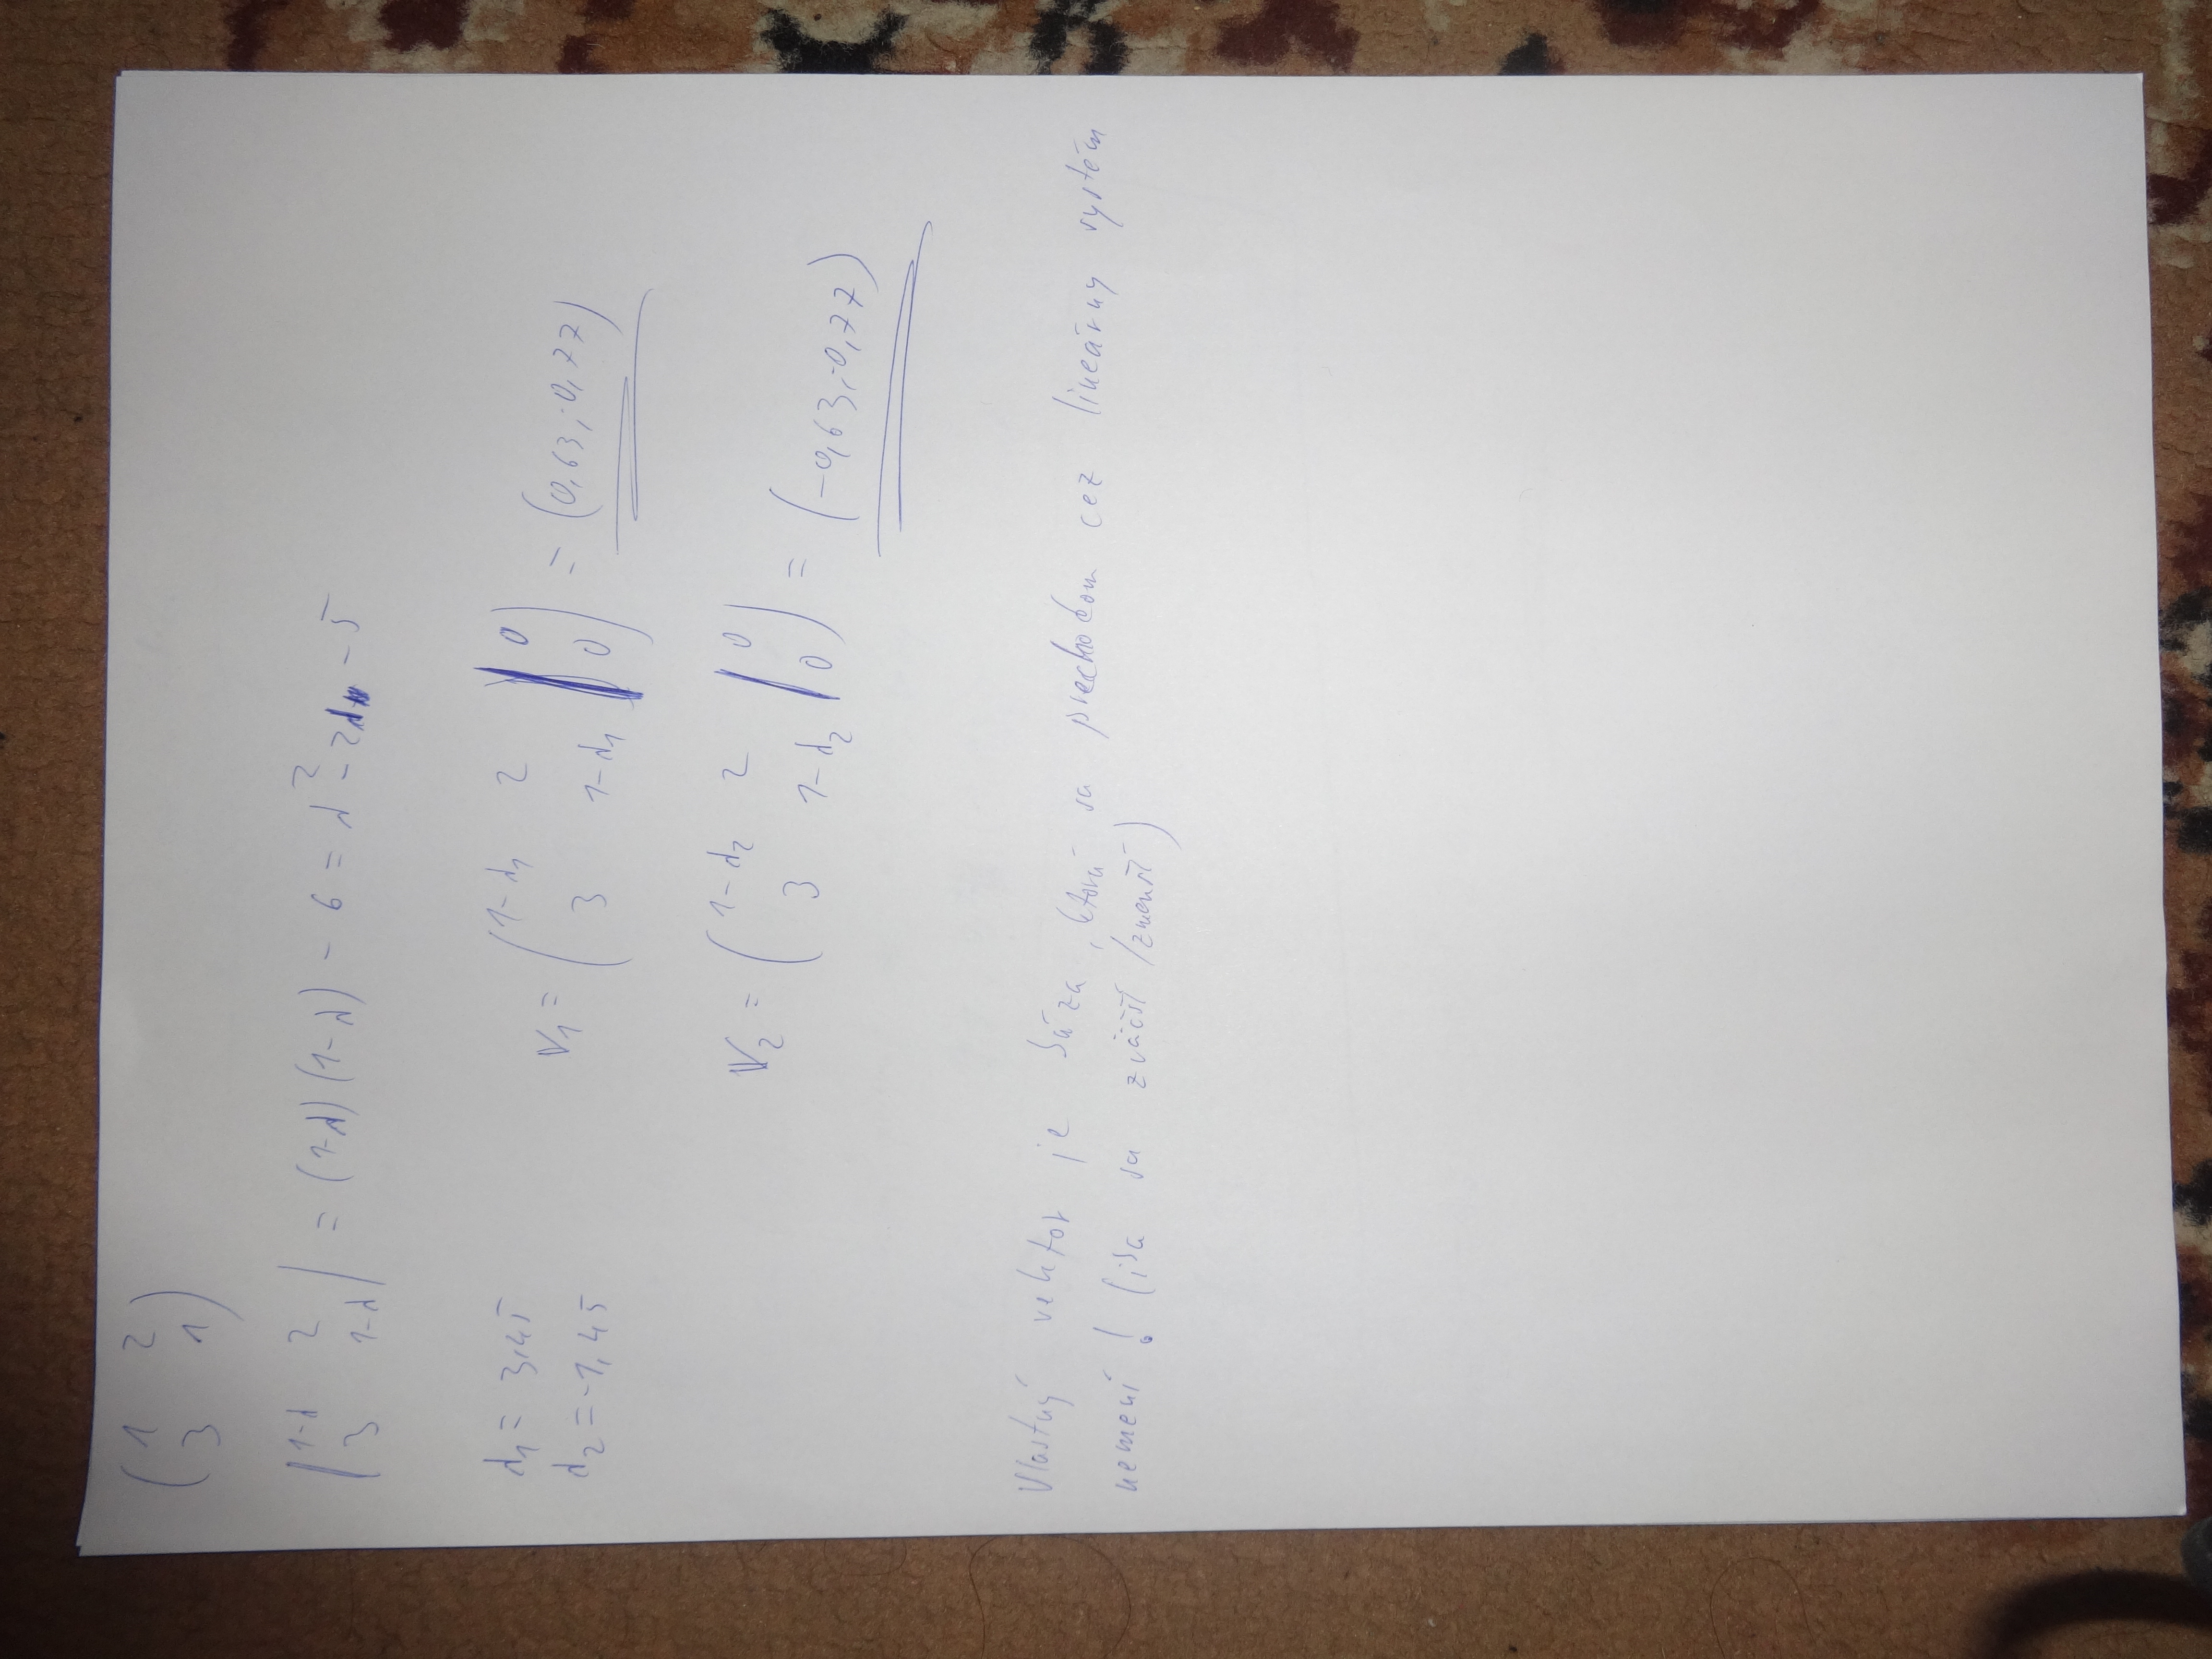 ( 1 2
3 1 )
| 1-λ 2
3 1-λ | = (1-λ)(1-λ) - 6 = λ² - 2λ - 5
λ₁ = 3,45
λ₂ = -1,45
V₁ = ( 1-λ₁ 2 | 0
3 1-λ₁ | 0 ) = (0,63;0,77)
V₂ = ( 1-λ₂ 2 | 0
3 1-λ₂ | 0 ) = (-0,63;0,77)
Vlastný vektor je báza, ktorá sa prechodom cez lineárny systém
nemení! (iba sa zväčší/zmenší)